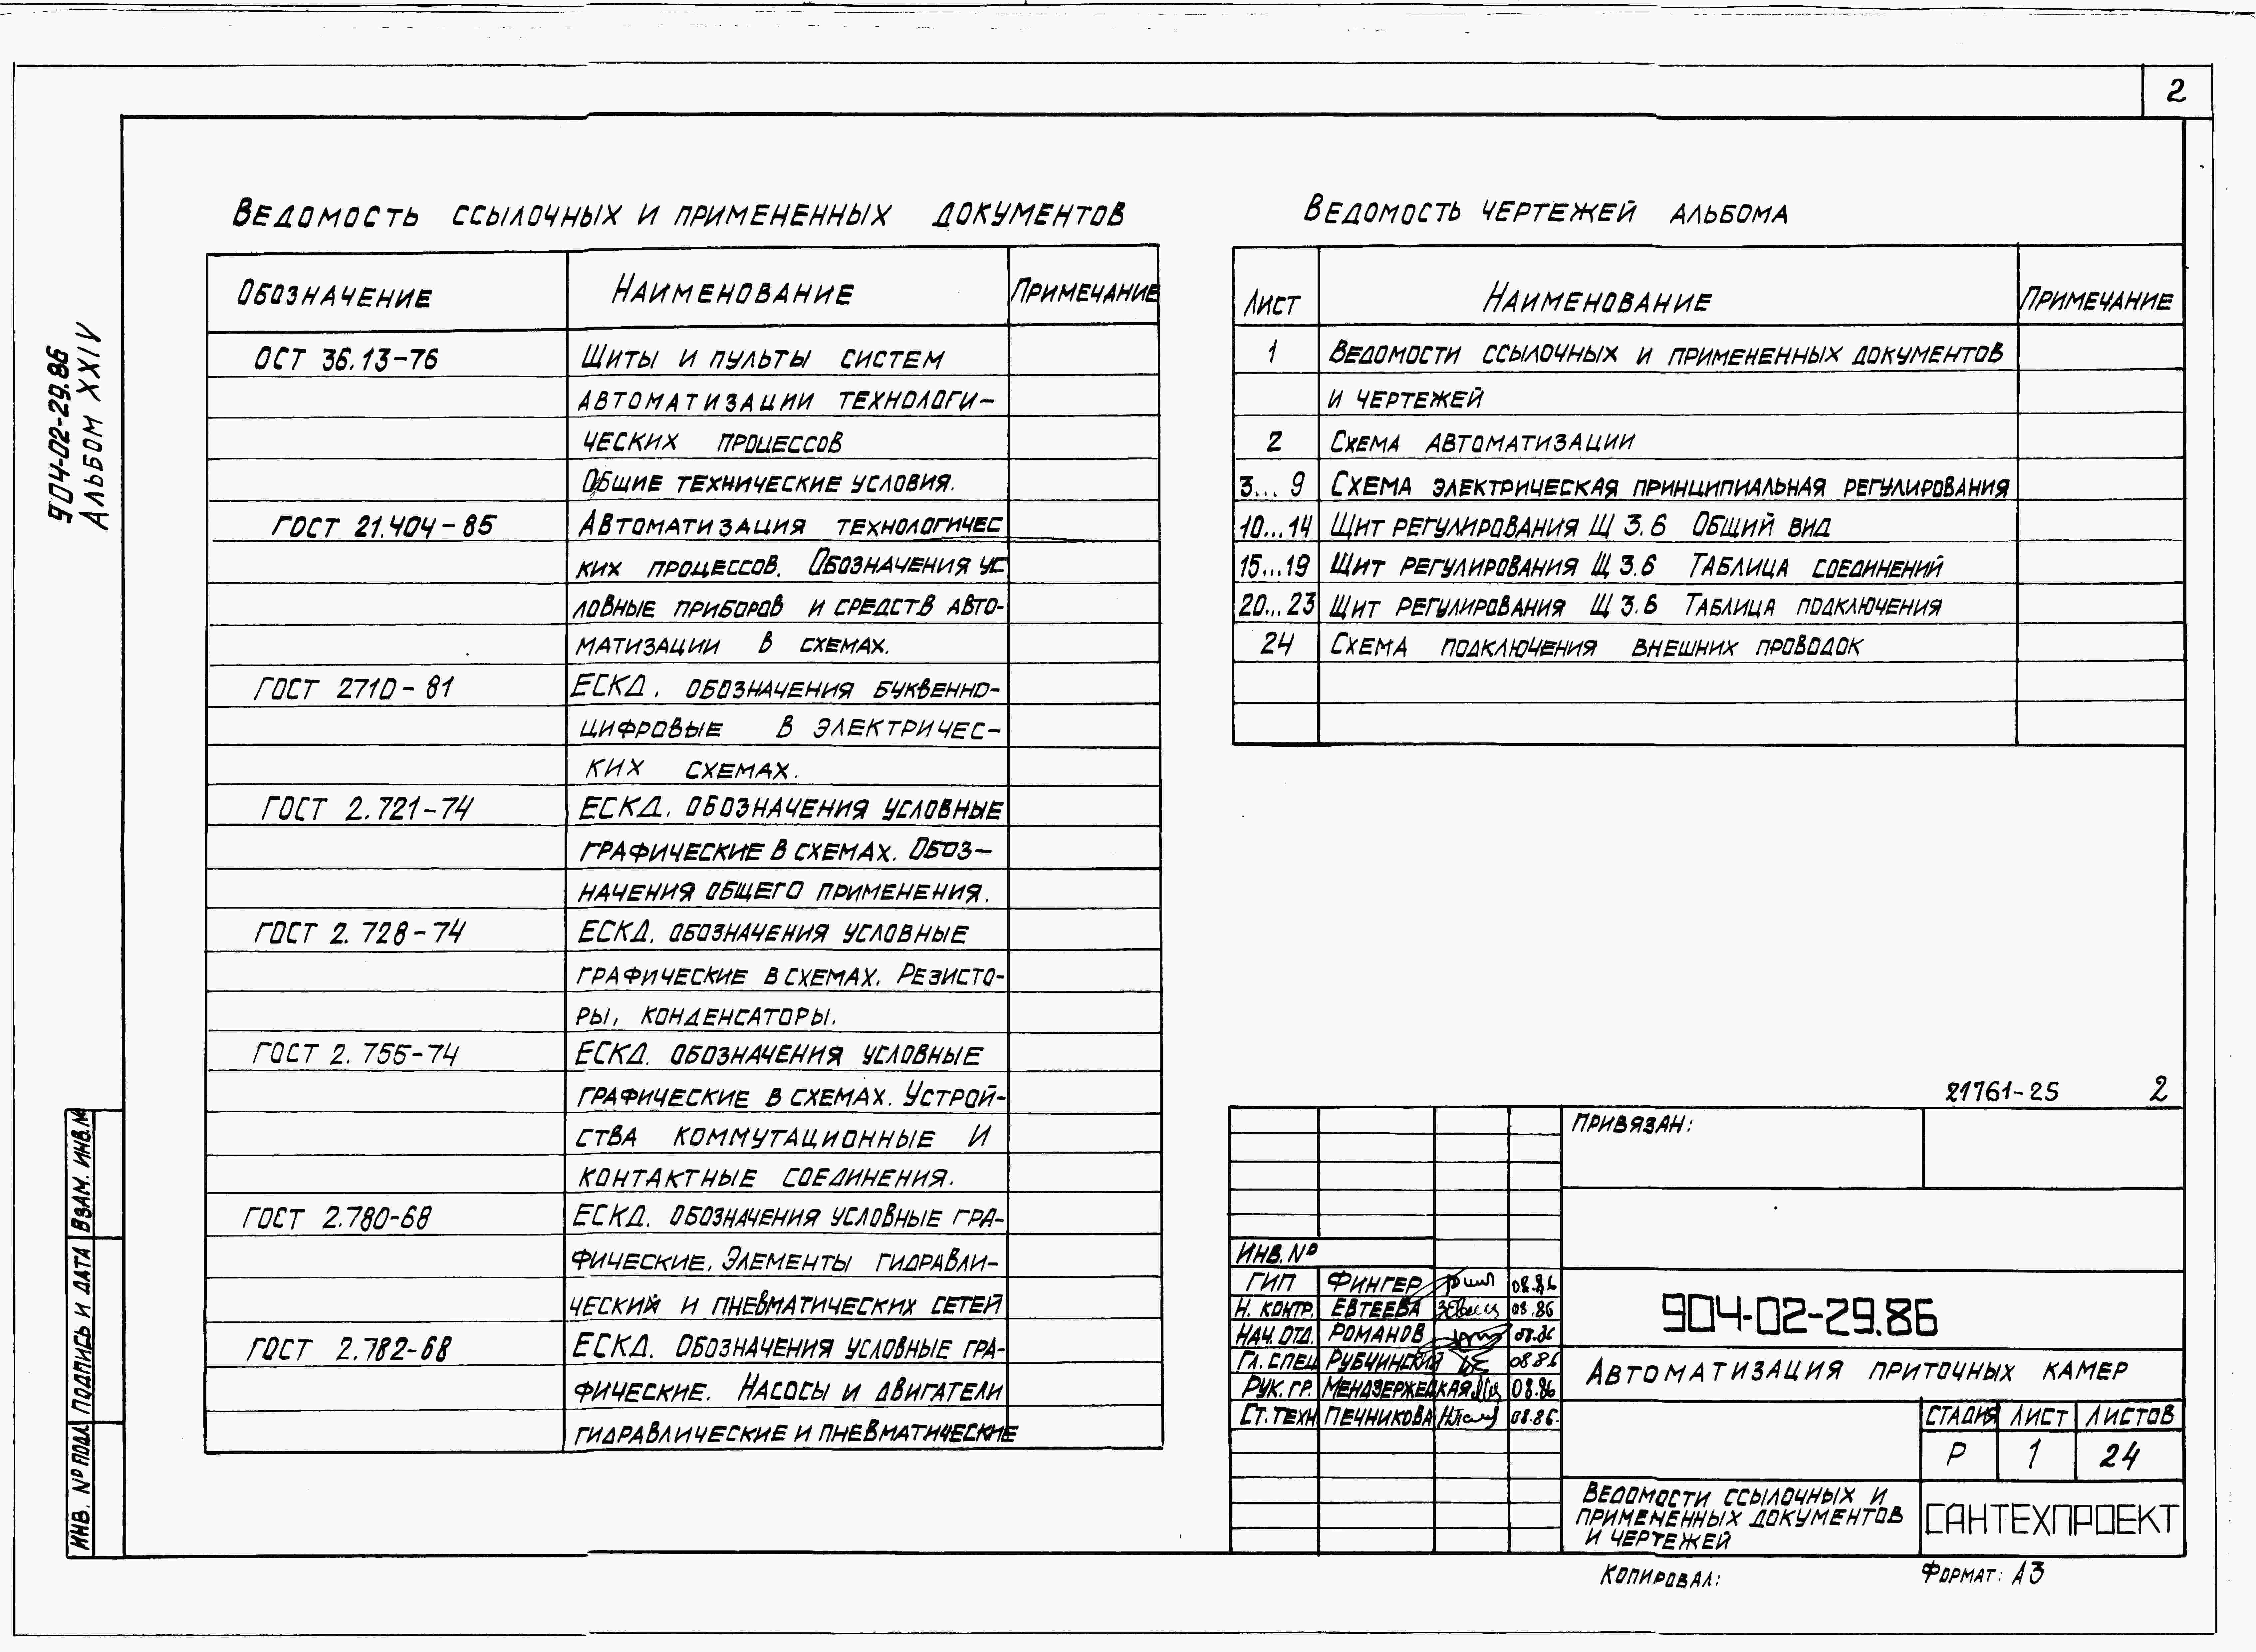 2
904-02-29.86
Альбом XXIV
Ведомость ссылочных и примененных документов
Обозначение Наименование Примечание
ОСТ 36.13-76 Щиты и пульты систем
автоматизации технологи-
ческих процессов
Общие технические условия.
ГОСТ 21.404-85 Автоматизация технологичес
ких процессов. Обозначения ус
ловные приборов и средств авто-
матизации в схемах.
ГОСТ 2710-81 ЕСКД. обозначения буквенно-
цифровые в электричес-
ких схемах.
ГОСТ 2.721-74 ЕСКД. обозначения условные
графические в схемах. Обоз-
начения общего применения.
ГОСТ 2.728-74 ЕСКД. обозначения условные
графические в схемах. Резисто-
ры, конденсаторы.
ГОСТ 2.755-74 ЕСКД. обозначения условные
графические в схемах. Устрой-
ства коммутационные и
контактные соединения.
ГОСТ 2.780-68 ЕСКД. обозначения условные гра-
фические. Элементы гидравли-
ческий и пневматических сетей
ГОСТ 2.782-68 ЕСКД. Обозначения условные гра-
фические. Насосы и двигатели
гидравлические и пневматические
Ведомость чертежей альбома
Лист Наименование Примечание
1 Ведомости ссылочных и примененных документов
и чертежей
2 Схема автоматизации
3...9 Схема электрическая принципиальная регулирования
10...14 Щит регулирования Щ 3.6 Общий вид
15...19 Щит регулирования Щ 3.6 Таблица соединений
20...23 Щит регулирования Щ 3.6 Таблица подключения
24 Схема подключения внешних проводок
21761-25 2
Привязан:
Инв. №
ГИП Фингер 08.86
Н. контр. Евтеева 08.86
Нач. отд. Романов 08.86
Гл. спец Рубчинский 08.86
Рук. гр. Мендзержецкая 08.86
Ст. техн Печникова 08.86.
904-02-29.86
Автоматизация приточных камер
Стадия Лист Листов
Р 1 24
Ведомости ссылочных и
примененных документов
и чертежей
САНТЕХПРОЕКТ
Копировал: Формат: А3
Взам. инв. №
Подпись и дата
Инв. № подл